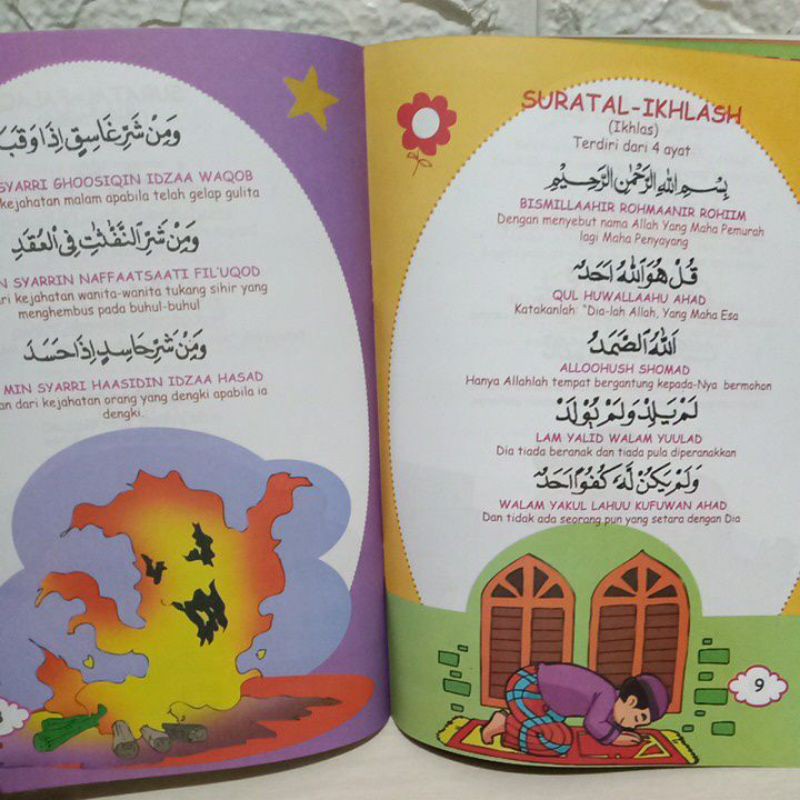 وَمِنْ شَرِّ غَاسِقٍ اِذَا وَقَبَ
SYARRI GHOOSIQIN IDZAA WAQOB
kejahatan malam apabila telah gelap gulita
وَمِنْ شَرِّ النَّفّٰثٰتِ فِى الْعُقَدِ
SYARRIN NAFFAATSAATI FIL'UQOD
kejahatan wanita-wanita tukang sihir yang
menghembus pada buhul-buhul
وَمِنْ شَرِّ حَاسِدٍ اِذَا حَسَدَ
MIN SYARRI HAASIDIN IDZAA HASAD
dari kejahatan orang yang dengki apabila ia
dengki.
SURATAL-IKHLASH
(Ikhlas)
Terdiri dari 4 ayat
بِسْمِ اللهِ الرَّحْمٰنِ الرَّحِيْمِ
BISMILLAAHIR ROHMAANIR ROHIIM
Dengan menyebut nama Allah Yang Maha Pemurah
lagi Maha Penyayang
قُلْ هُوَ اللهُ اَحَدٌ
QUL HUWALLAAHU AHAD
Katakanlah: "Dia-lah Allah, Yang Maha Esa
اَللهُ الصَّمَدُ
ALLOOHUSH SHOMAD
Hanya Allahlah tempat bergantung kepada-Nya bermohon
لَمْ يَلِدْ وَلَمْ يُوْلَدْ
LAM YALID WALAM YUULAD
Dia tiada beranak dan tiada pula diperanakkan
وَلَمْ يَكُنْ لَّهٗ كُفُوًا اَحَدٌ
WALAM YAKUL LAHUU KUFUWAN AHAD
Dan tidak ada seorang pun yang setara dengan Dia
9